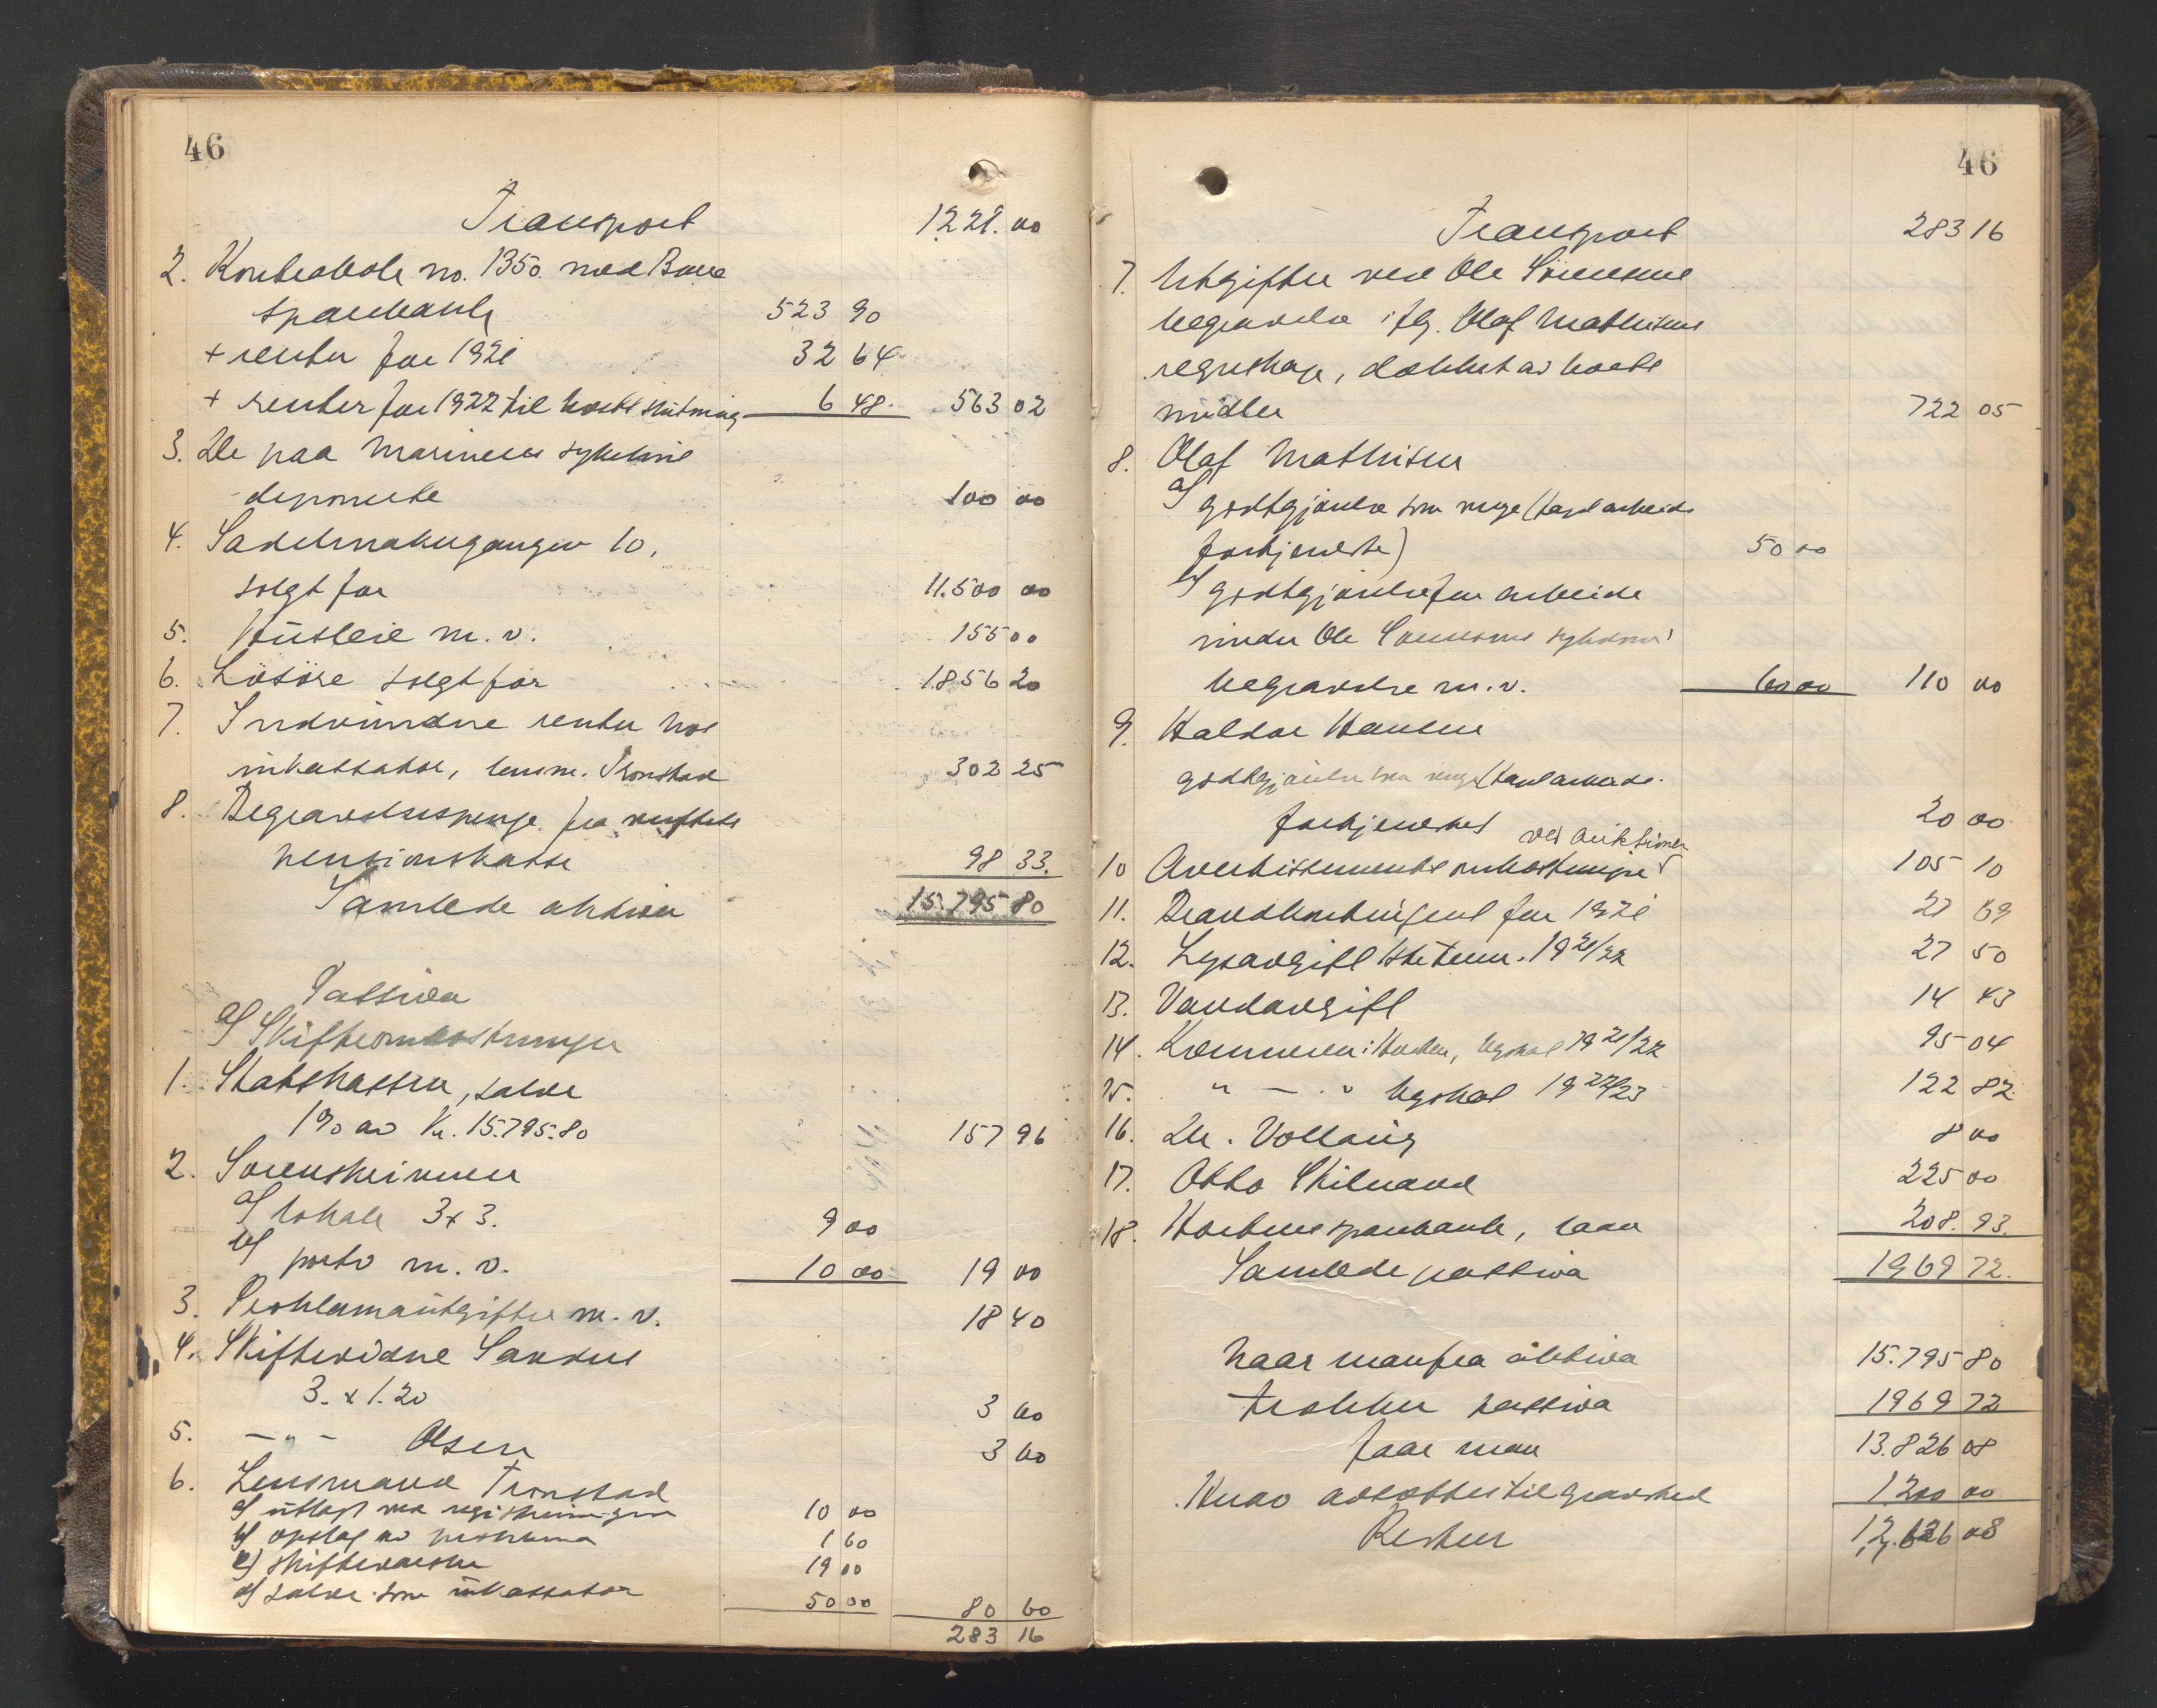 46
Transport 1221.00
2. Kontrabok no. 1350 med Borre
sparebank 523 90
+ renter for 1921 32 64
+ renter for 1922 til boets slutning 6 48 563 02
3. De paa Marinens sykehus
deponerte 100 00
4. Sadelmakergangen 10,
solgt for 11.500 00
5. Husleie m.v. 155 00
6. Løsøre solgt for 1.856 20
7. Indvundne renter hos
inkassator, lensm. Tronstad 302 25
8. Begravelsespenge fra verftets
pensionskasse 98 33.
Samlede aktiva 15.795 80
Passiva
a) Skifteomkostninger
1. Statskassen, salær
1% av kr. 15.795.80 157 96
2. Sorenskriveren
a) lokale 3 x 3. 9 00
b) porto m.v. 10 00 19 00
3. Proklamautgifter m.v. 18 40
4. Skiftevidne Sanden
3. x 1.20 3 60
5. - " - Olsen 3 60
6. Lensmand Tronstad
a) utlagt ved registreringen 10 00
b) opslag av proklama 1 60
c) skiftevæsen 19 00
d) salær som inkassator 50 00 80 60
283 16
46
Transport 283 16
7. Utgifter ved Ole Sørensens
begravelse iflg. Olaf Mathisens
regnskap, dækket av boets
midler 722 05
8. Olaf Mathisen
a) godtgjørelse som verge (tapt arbeids
fortjeneste) 50 00
b) godtgjørelse for arbeide
under Ole Sørensens sykdom,
begravelse m.v. 60 00 110 00
9. Haldor Hansen
godtgjørelse som verge (tapt arbeids-
fortjeneste) 20 00
ved auktionen
10 Avertissementsomkostninger 105 10
11. Brandkontingent for 1921 27 69
12. Lysavgift 1ste term. 19 21/22 27 50
13. Vandavgift 14 43
14. Kæmneren i Horten, byskat 19 21/22 95 04
15. " — " byskat 19 22/23 122 82
16. Dr. Vollaug 8 00
17. Otto Skilvand 225 00
18. Hortens sparebank, laan 208. 93.
Samlede passiva 1969 72.
Naar man fra aktiva 15.795 80
trækker passiva 1969 72
faar man 13.826 08
Herav avsættes til gravsted 1.200 00
Resten 12.626 08